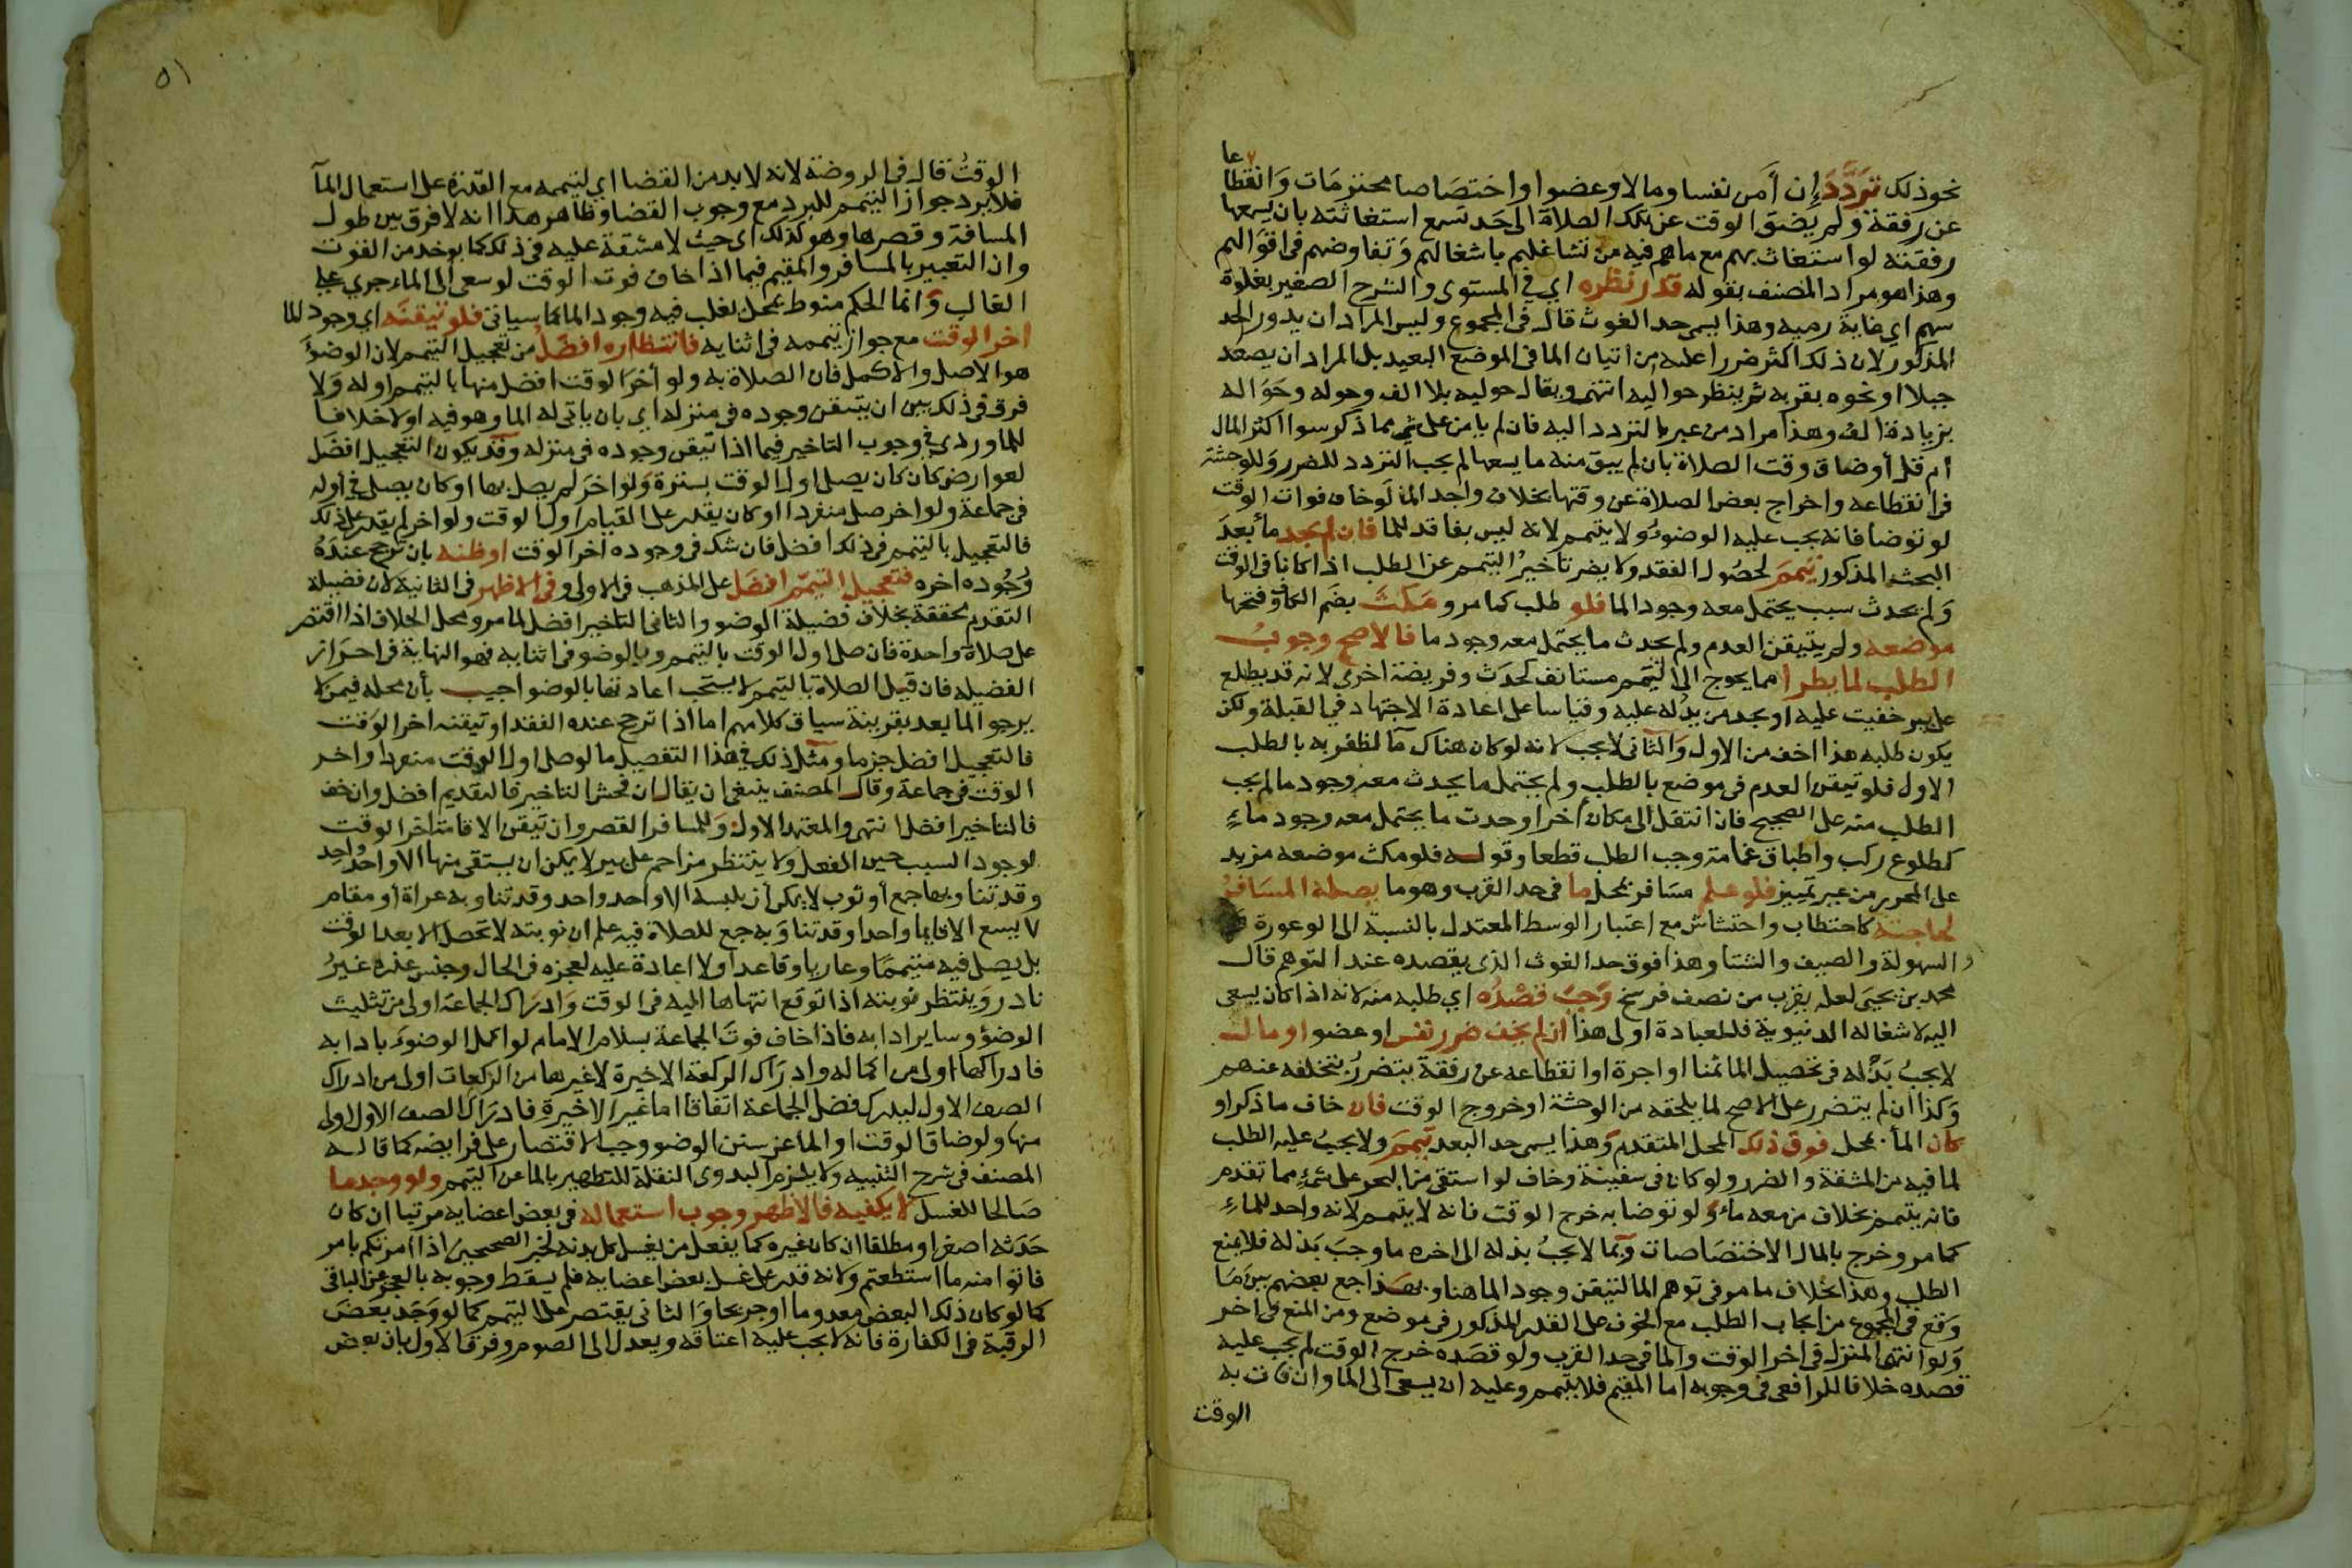 نحو ذلك تردد إن أمن نفسا ومالا وعضوا واختصاصا محترمات وانقطاعا
عن رفقة ولم يضق الوقت عن تلك الصلاة الى حد تسمع استغاثته بان يسمعها
رفقته لو استغاث بهم مع ما هم فيه من تشاغلهم باشغالهم وتفاوضهم فى اقوالهم
وهذا هو مراد المصنف بقوله قدر نظره اي في المستوى والشرح الصغير بغلوة
سهم اي غاية رميه وهذا يسمى حد الغوث قال فى المجموع وليس المراد ان يدور الحد
المذكور لان ذلك اكثر ضررا عليه من اتيان الما فى الموضع البعيد بل المراد ان يصعد
جبلا او نحوه بقربه ثم ينظر حواليه انتهى ويقال حوليه بلا الف وحوله وحواله
بزيادة الف وهذا مراد من عبر بالتردد اليه فان لم يامن على شى مما ذكر سوا اكثر المال
أم قل أو ضاق وقت الصلاة بان لم يبق منه ما يسعها لم يجب التردد للضرر وللوحشة
فى انقطاعه واخراج بعض الصلاة عن وقتها بخلاف واجد الما لو خاف فوات الوقت
لو توضا فانه يجب عليه الوضوء ولا يتيمم لانه ليس بفاقد للما فان لم يجد ما بعد
البحث المذكور تيمم لحصول الفقد ولا يضر تاخير التيمم عن الطلب اذا كانا فى الوقت
ولم يحدث سبب يحتمل معه وجود الما فلو طلب كما مر ومكث بضم الكاف وفتحها
موضعه ولم يتيقن العدم ولم يحدث ما يحتمل معه وجود ما فالاصح وجوب
الطلب لما يطرا مما يحوج الى التيمم مستانف كحدث وفريضة اخرى لانه قد يطلع
على بير خفيت عليه او يجد من يدله عليه وقياسا على اعادة الاجتهاد في القبلة ولكن
يكون طلبه هذا اخف من الاول والثانى لا يجب لانه لو كان هناك ما لظفر به بالطلب
الاول فلو تيقن العدم فى موضع بالطلب ولم يحتمل ما يحدث معه وجود ما لم يجب
الطلب منه على الصحيح فان انتقل الى مكان أخر او حدث ما يحتمل معه وجود ماء
كطلوع ركب واطباق غمامة وجب الطلب قطعا وقوله فلو مكث موضعه مزيد
على المحرر من غير تمييز فلو علم مسافر بمحل ما فى حد القرب وهو ما يصله المسافر
لحاجته كاحتطاب واحتشاش مع اعتبار الوسط المعتدل بالنسبة الى الوعورة
والسهولة والصيف والشتا وهذا فوق حد الغوث الذى يقصده عند التوهم قال
محمد بن يحيى لعله يقرب من نصف فرسخ وجب قصده اي طلبه منه لانه اذا كان يسعى
اليه لاشغاله الدنيوية فللعبادة اولى هذا ان لم يخف ضرر نفس او عضو او مال
لا يجب بذله فى تحصيل الما ثمنا او اجرة او انقطاعه عن رفقة يتضرر بتخلفه عنهم
وكذا ان لم يتضرر على الاصح لما يلحقه من الوحشة او خروج الوقت فان خاف ما ذكر او
كان الما بمحل فوق ذلك المحل المتقدم وهذا يسمى حد البعد تيمم ولا يجب عليه الطلب
لما فيه من المشقة والضرر ولو كان فى سفينة وخاف لو استقى من البحر على شيء مما تقدم
فانه يتيمم بخلاف من معه ماء ولو توضا به خرج الوقت فانه لا يتيمم لانه واجد للماء
كما مر وخرج بالمال الاختصاصات وبما لا يجب بذله الى اخره ما وجب بذله فلا يمنع
الطلب وهذا بخلاف ما مر فى توهم الما لتيقن وجود الما هنا وبهذا جمع بعضهم بين ما
وقع فى المجموع من ايجاب الطلب مع الخوف على القدر المذكور فى موضع ومن المنع فى اخر
ولو انتهى المنزل فى اخر الوقت والما فى حد القرب ولو قصده خرج الوقت لم يجب عليه
قصده خلافا للرافعى فى وجوبه اما المقيم فلا يتيمم وعليه ان يسعى الى الما وان فات به
الوقت
٥١
الوقت قال فى الروضة لانه لا بد من القضا اي لتيممه مع القدرة على استعمال الما
فلا يرد جواز التيمم للبرد مع وجوب القضا وظاهر هذا انه لا فرق بين طول
المسافة وقصرها وهو كذلك اى حيث لا مشقة عليه فى ذلك كما يوخد من الفوت
وان التعبير بالمسافر والمقيم فيما اذا خاف فوت الوقت لو سعى الى الماء جري على
الغالب وانما الحكم منوط بمحل يغلب فيه وجود الما كما سياتى فلو تيقنه اي وجود الما
اخر الوقت مع جواز تيممه فى اثنايه فانتظاره افضل من تعجيل التيمم لان الوضوء
هو الاصل والاكمل فان الصلاة به ولو أخر الوقت افضل منها بالتيمم اوله ولا
فرق فى ذلك بين ان يتيقن وجوده فى منزله اي بان ياتى له الما وهو فيه اولا خلافا
للماوردى فى وجوب التاخير فيما اذا تيقن وجوده فى منزله وقد يكون التعجيل افضل
لعوارض كان كان يصلى اول الوقت بسترة ولو اخر لم يصل بها او كان يصلى في أوله
فى جماعة ولو اخر صلى منفردا او كان يقدر على القيام اول الوقت ولو اخر لم يقدر على ذلك
فالتعجيل بالتيمم فى ذلك افضل فان شك فى وجوده اخر الوقت او ظنه بان ترجح عنده
وجوده اخره فتعجيل التيمم افضل على المذهب فى الاولى وفى الاظهر فى الثانية لان فضيلة
التقدم محققة بخلاف فضيلة الوضو والثانى التاخير افضل لما مر ومحل الخلاف اذا اقتصر
على صلاة واحدة فان صلى اول الوقت بالتيمم وبالوضو فى اثنايه فهو النهاية فى احراز
الفضيلة فان قيل الصلاة بالتيمم لا يستحب اعادتها بالوضو اجيب بأن محله فيمن لا
يرجو الما بعد بقرينة سياق كلامهم اما اذا ترجح عنده الفقد او تيقنه اخر الوقت
فالتعجيل افضل جزما ومثل ذلك في هذا التفصيل ما لو صلى اول الوقت منفردا واخر
الوقت فى جماعة وقال المصنف ينبغى ان يقال ان فحش التاخير فالتقديم افضل وان خف
فالتاخير افضل انتهى والمعتمد الاول وللمسافر القصر وان تيقن الاقامة اخر الوقت
لوجود السبب حين الفعل ولا ينتظر مزاحم على بير لا يمكن ان يستقى منها الا واحد واحد
وقد تناوبها جمع أو ثوب لا يمكن أن يلبسه الا واحد واحد وقد تناوبه عراة أو مقام
لا يسع الا قايما واحدا وقد تناوبه جمع للصلاة فيه علم ان نوبته لا تحصل الا بعد الوقت
بل يصلى فيه متيمما وعاريا وقاعدا ولا اعادة عليه لعجزه فى الحال وجنس عذره غير
نادر وينتظر نوبته اذا توقع انتهاها اليه فى الوقت وادراك الجماعة اولى من تثليث
الوضؤ وساير ادابه فاذا خاف فوت الجماعة بسلام الامام لو اكمل الوضوء بادابه
فادراكها اولى من اكماله وادراك الركعة الاخيرة لا غيرها من الركعات اولى من ادراك
الصف الاول ليدرك فضل الجماعة اتفاقا اما غير الاخيرة فادراك الصف الاول اولى
منها ولو ضاق الوقت او الما عن سنن الوضو وجب الاقتصار على فرايضه كما قاله
المصنف فى شرح التنبيه ولا يلزم البدوى النقلة للتطهير بالما عن التيمم ولو وجد ما
صالحا للغسل لا يكفيه فالاظهر وجوب استعماله فى بعض اعضايه مرتبا ان كان
حدثه اصغر او مطلقا ان كان غيره كما يفعل من يغسل كل بدنه لخبر الصحيحين اذا امرتكم بامر
فاتوا منه ما استطعتم ولانه قدر على غسل بعض اعضايه فلم يسقط وجوبه بالعجز عن الباقى
كما لو كان ذلك البعض معدوما او جريحا والثانى يقتصر على التيمم كما لو وجد بعض
الرقبة فى الكفارة فانه لا يجب عليه اعتاقه ويعدل الى الصوم وفرق الاول بان بعض